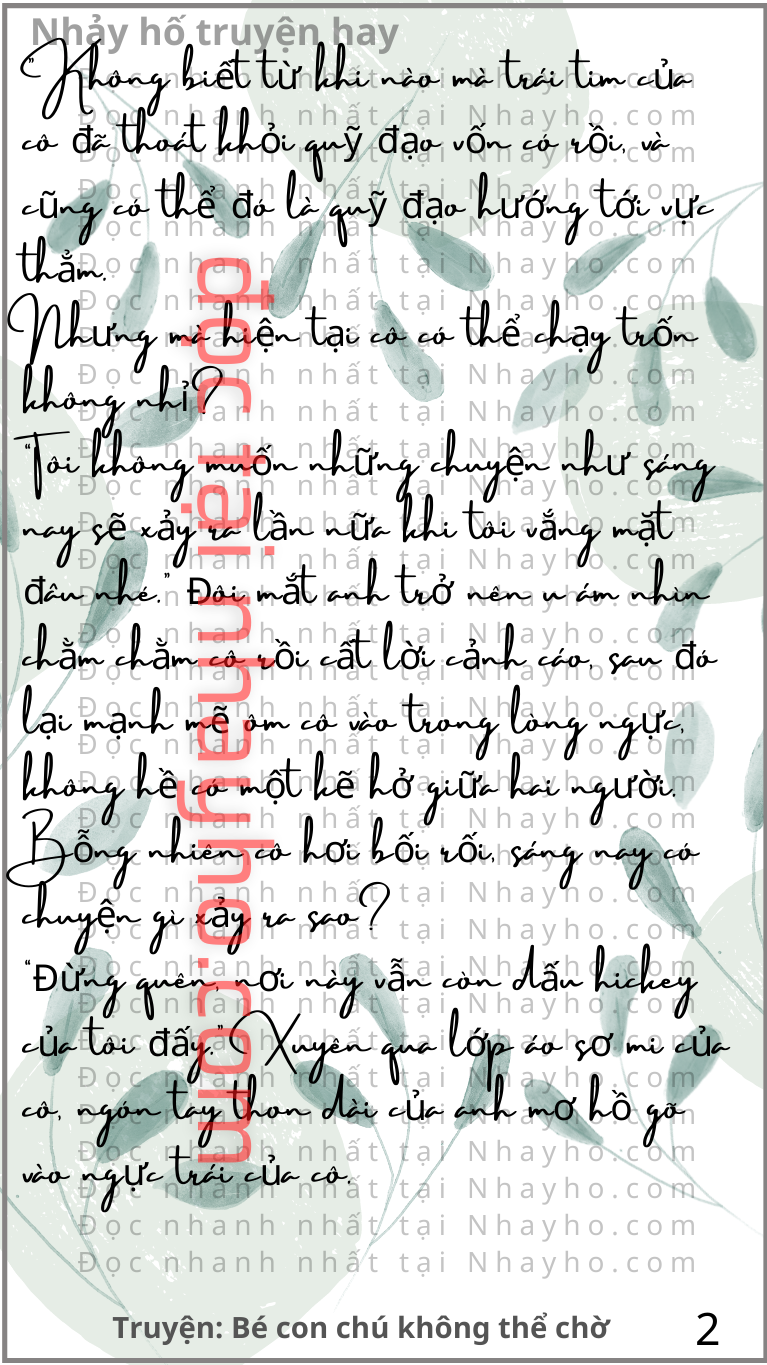 Nhảy hố truyện hay
"Không biết từ khi nào mà trái tim của
cô đã thoát khỏi quỹ đạo vốn có rồi, và
cũng có thể đó là quỹ đạo hướng tới vực
thẳm.
Nhưng mà hiện tại cô có thể chạy trốn
không nhỉ?
“Tôi không muốn những chuyện như sáng
nay sẽ xảy ra lần nữa khi tôi vắng mặt
đâu nhé.” Đôi mắt anh trở nên u ám nhìn
chằm chằm cô rồi cất lời cảnh cáo, sau đó
lại mạnh mẽ ôm cô vào trong lòng ngực,
không hề có một kẽ hở giữa hai người.
Bỗng nhiên cô hơi bối rối, sáng nay có
chuyện gì xảy ra sao?
“Đừng quên, nơi này vẫn còn dấu hickey
của tôi đấy.” Xuyên qua lớp áo sơ mi của
cô, ngón tay thon dài của anh mơ hồ gõ
vào ngực trái của cô.
đọc tại nhayho.com
Đọc nhanh nhất tại Nhayho.com
Đọc nhanh nhất tại Nhayho.com
Truyện: Bé con chú không thể chờ
2